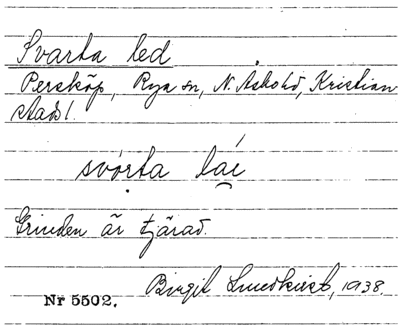 Svarta led
Persköp, Rya sn, N. Åsbo hd, Kristian
stads l.
svórta láe
Grinden är tjärad.
Birgit Lundkvist, 1938.
Nr 5502.